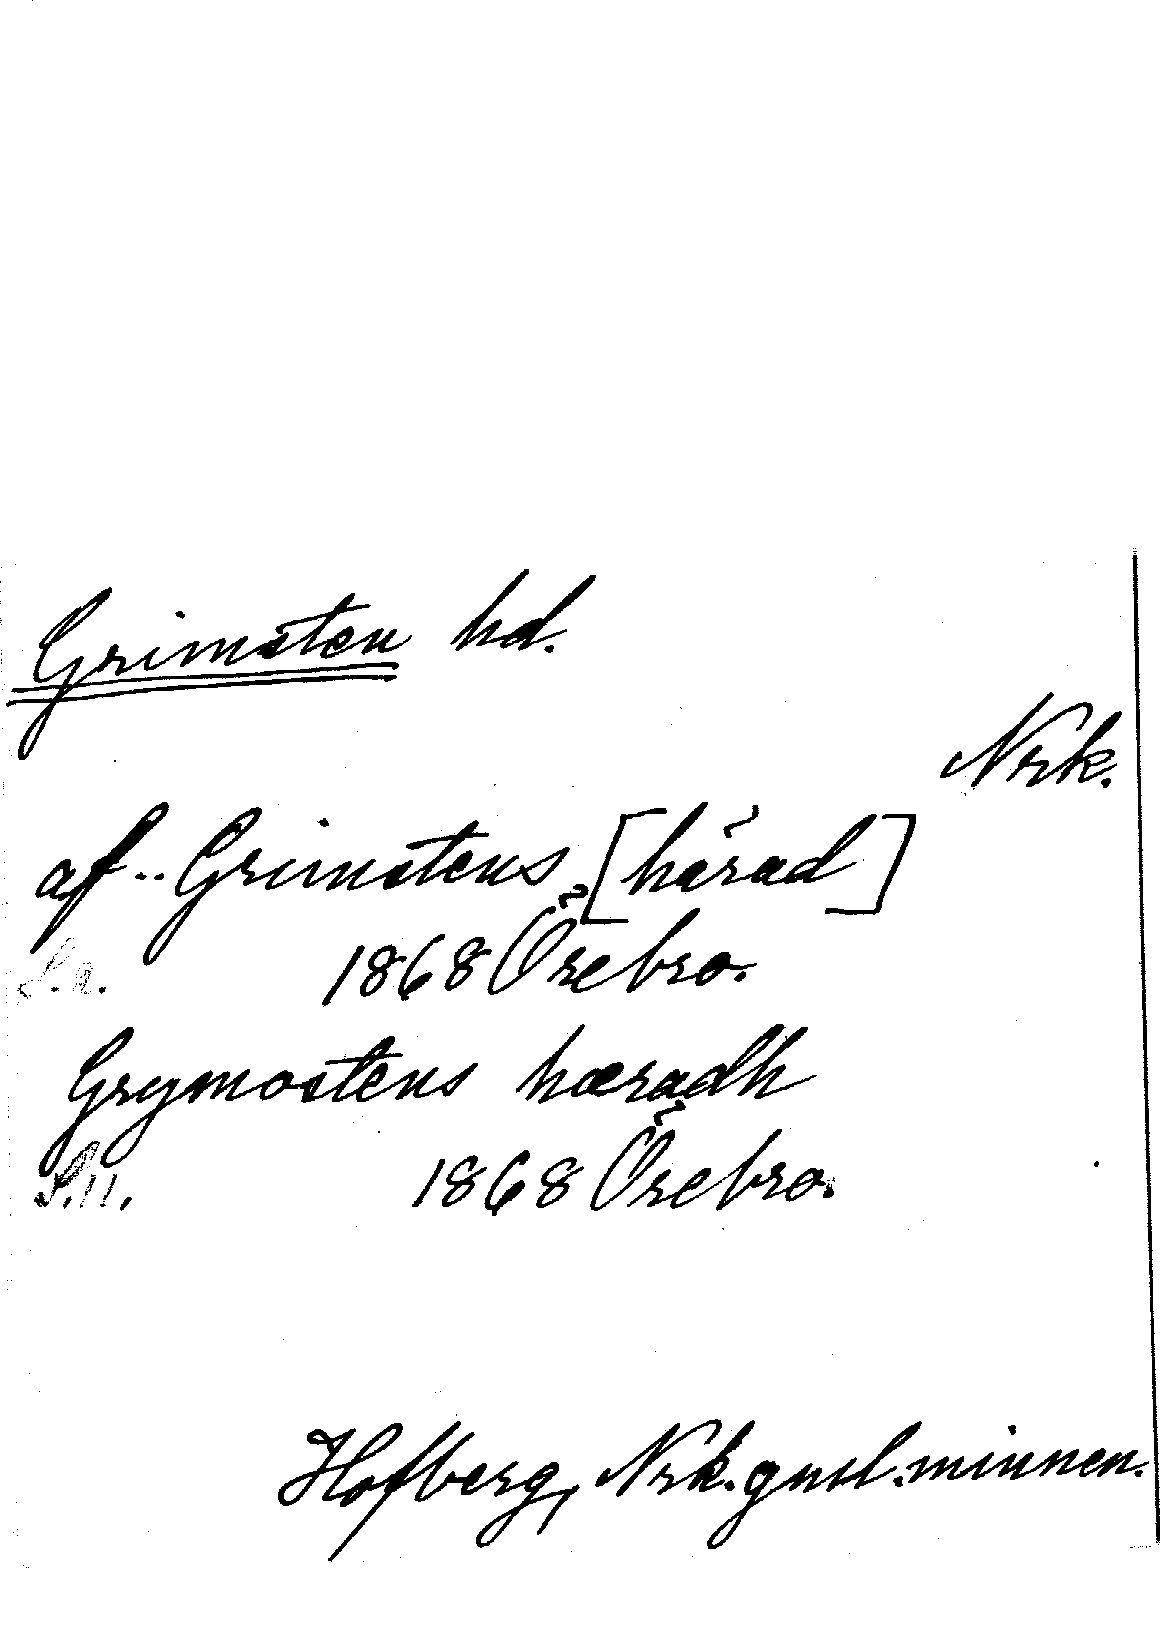 Grimsten hd.
Nrk.
af .. Grimstens [härad]
S. 9. 1868 Örebro.
Grymostens hæradh
S. 11. 1868 Örebro.
Hofberg, Nrk. gml. minnen.